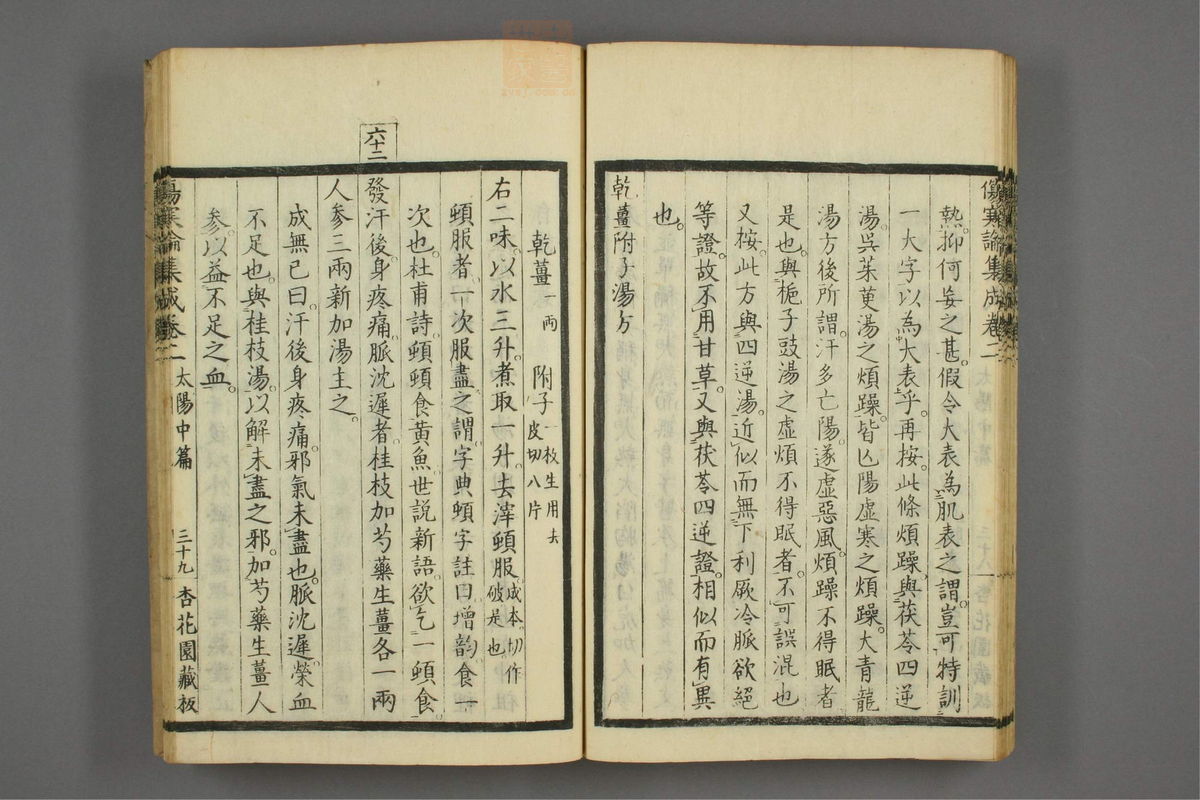 傷寒論集成卷二
熱。抑何妄之甚。假令大表為肌表之謂。豈可特訓
一大字以為大表乎。再按。此條煩躁。與茯苓四逆
湯。吳茱萸湯之煩躁。皆亡陽虛寒之煩躁。大青龍
湯方後所謂。汗多亡陽。遂虛惡風。煩躁不得眠者
是也。與梔子豉湯之虛煩不得眠者。不可誤混也
又按。此方與四逆湯。近似而無下利厥冷脈欲絕
等證。故不用甘草。又與茯苓四逆證。相似而有異
也。
乾薑附子湯方
乾薑一兩 附子一枚生用去皮切八片
右二味。以水三升。煮取一升。去滓頓服。成本切作破是也
頓服者。一次服盡之謂。字典頓字註曰。增韵。食一
次也。杜甫詩。頓頓食黃魚。世說新語。欲乞一頓食。
六十二
發汗後。身疼痛。脈沈遲者。桂枝加芍藥生薑各一兩
人參三兩新加湯主之。
成無已曰。汗後身疼痛。邪氣未盡也。脈沈遲。榮血
不足也。與桂枝湯。以解未盡之邪。加芍藥生薑人
參。以益不足之血。
傷寒論集成卷二 太陽中篇 三十九 杏花園藏板